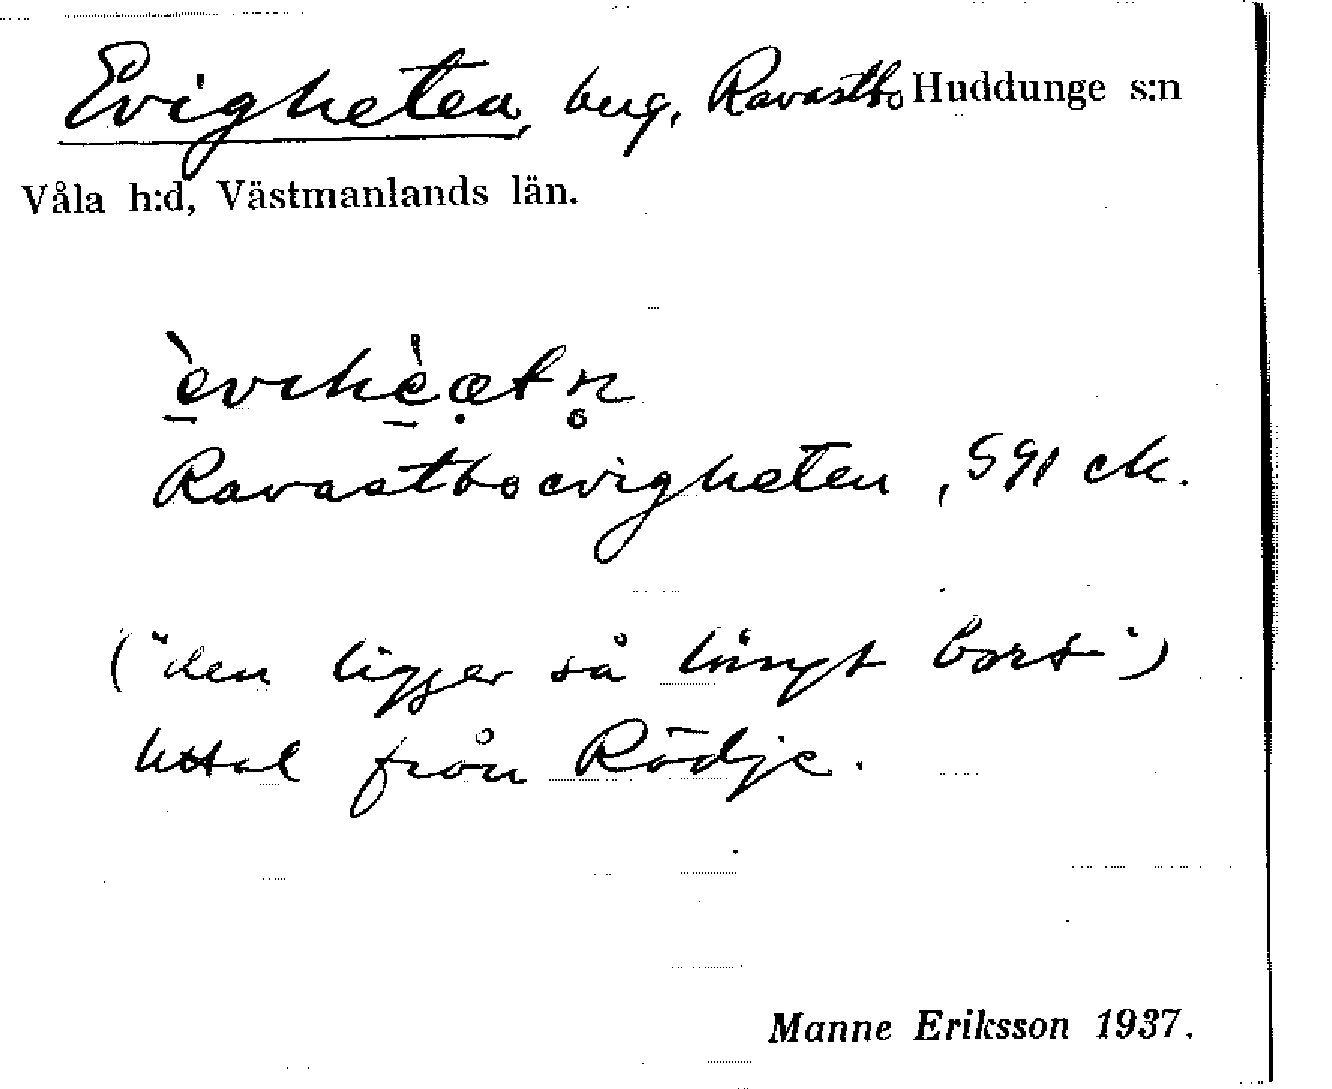 Evigheten, berg, Ravastbo Huddunge s:n
Våla h:d, Västmanlands län.
Ravastboevigheten, S 91 ek.
("den ligger så långt bort")
Uttal från Rödje.
Manne Eriksson 1937.